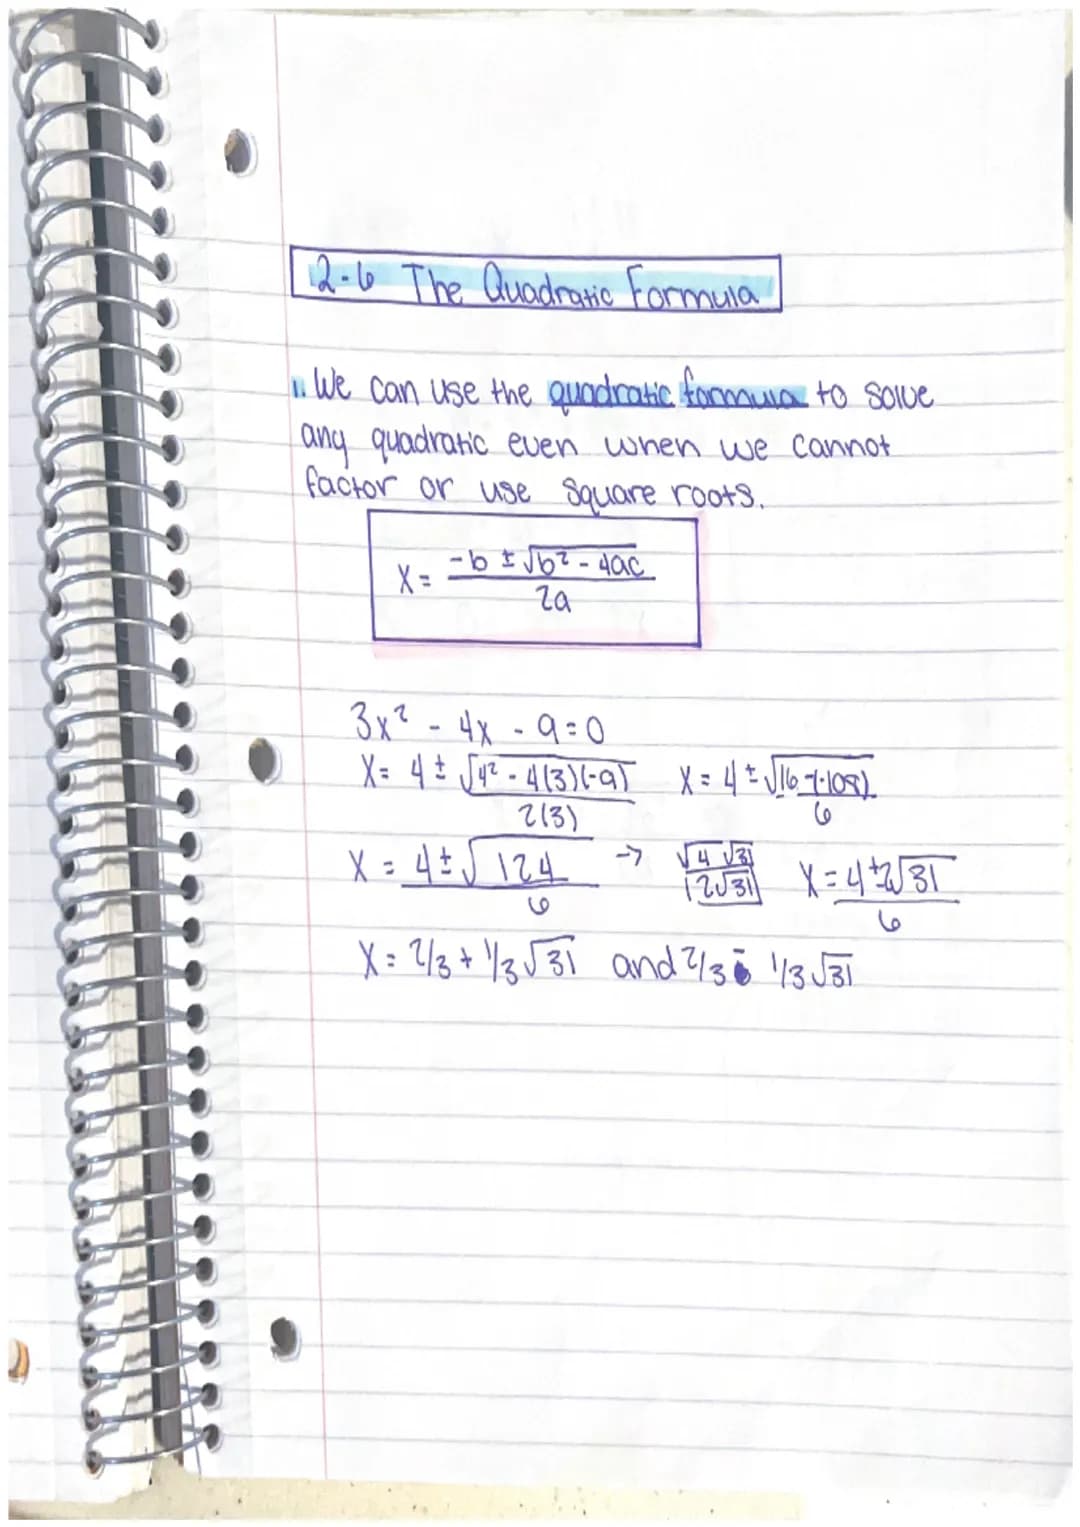 2-6 The Quadratic Formula
1. We can use the quadratic formula to solve
any quadratic even when we cannot
factor or use square roots.
x = -b ± √b² - 4ac
2a
3x² - 4x - 9 = 0
x = 4 ± √4² - 4(3)(-9) x = 4 ± √16 -(-108)
2(3) 6
x = 4 ± √124 → √4 √31 x = 4 ± 2√31
6 2√31 6
x = 2/3 + 1/3√31 and 2/3 - 1/3√31